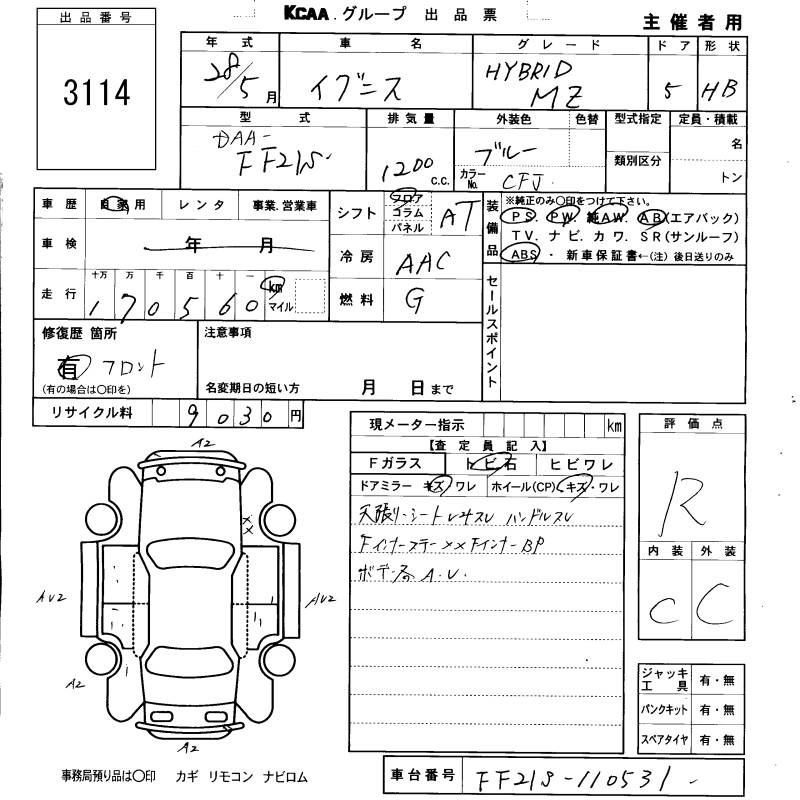 出品番号
KCAA.グループ 出品票
主催者用
3114
年式 車名 グレード ドア 形状
28/5月 イグニス HYBRID MZ 5 HB
型式 排気量 外装色 色替 型式指定 定員・積載
DAA-FF21S 1200 c.c. ブルー 名
カラーNo. CFJ 類別区分 トン
車歴 自家用 レンタ 事業.営業車
シフト フロア コラム パネル AT
装備品 ※純正のみ○印をつけて下さい。
PS. PW 純AW. AB(エアバック)
TV. ナビ. カワ. SR(サンルーフ)
ABS・新車保証書←(注)後日送りのみ
車検 年 月
冷房 AAC
走行 十万 万 千 百 十 一
170560 km マイル
燃料 G
セールスポイント
修復歴 箇所
有 フロント
(有の場合は○印を)
注意事項
名変期日の短い方 月 日まで
リサイクル料 9030円
現メーター指示 km
【査定員記入】
Fガラス トビ石 ヒビワレ
ドアミラー キズ ワレ ホイール(CP) キズ・ワレ
天張り・シート ハンドルスレ
Fインナーステー××FインナーBP
A.U.
評価点
R
内装 外装
C C
A2
××
AU2
AU2
A2
A2
A2
ジャッキ工具 有・無
パンクキット 有・無
スペアタイヤ 有・無
事務局預り品は○印 カギ リモコン ナビロム
車台番号 FF21S-110531